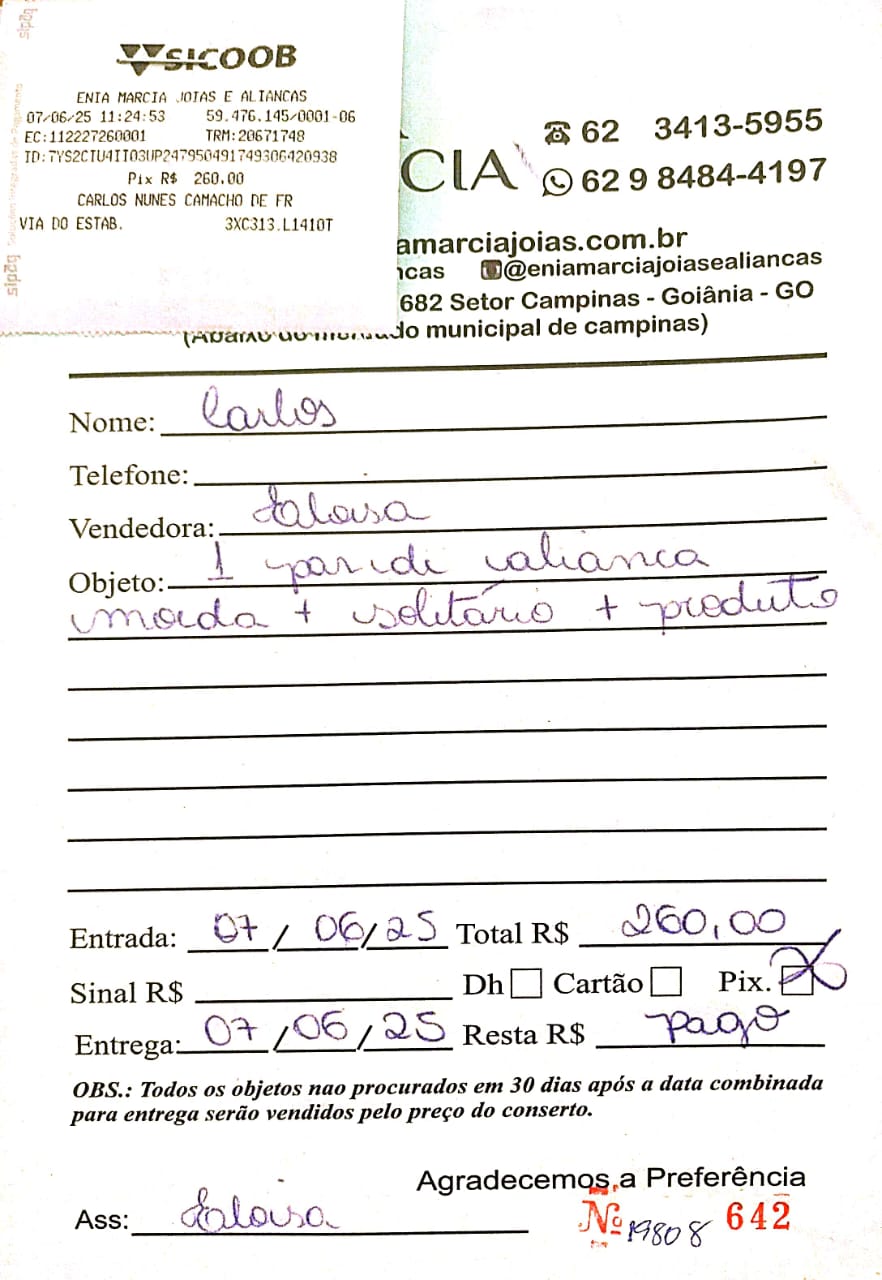 SICOOB
ENIA MARCIA JOIAS E ALIANCAS
07/06/25 11:24:53 59.476.145/0001-06
EC:112227260001 TRM:20671748
ID:7YS2CTU4IT03UP247950491749306420938
Pix R$ 260.00
CARLOS NUNES CAMACHO DE FR
VIA DO ESTAB. 3XC313.L1410T
sipag
CIA
62 3413-5955
62 9 8484-4197
amarciajoias.com.br
ncas @eniamarciajoiasealiancas
682 Setor Campinas - Goiânia - GO
do municipal de campinas)
Nome: Carlos
Telefone:
Vendedora: Heloisa
Objeto: 1 par de alianca
moeda + solitário + produto
Entrada: 07/06/25 Total R$ 260,00
Sinal R$ Dh Cartão Pix. X
Entrega: 07/06/25 Resta R$ pago
OBS.: Todos os objetos nao procurados em 30 dias após a data combinada
para entrega serão vendidos pelo preço do conserto.
Agradecemos a Preferência
Ass: Heloisa
Nº 19808 642